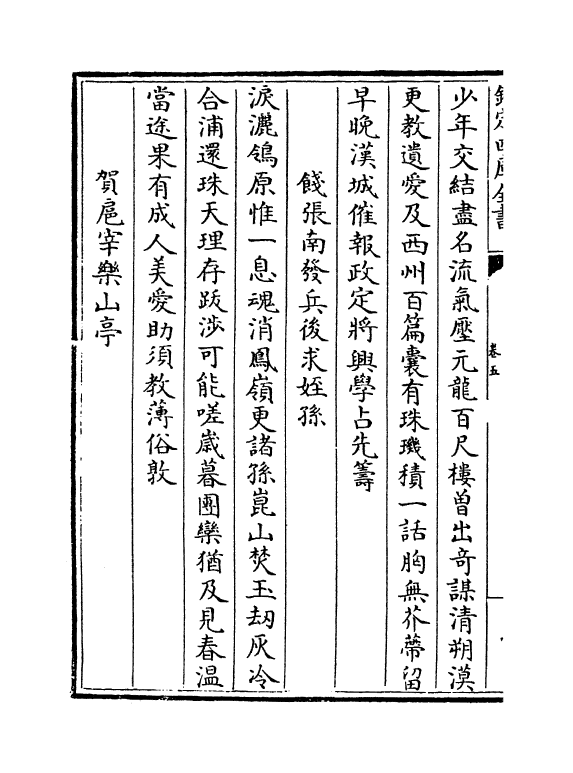 欽定四庫全書
卷五
少年交結盡名流氣壓元龍百尺樓曾出奇謀清朔漠
更教遺愛及西州百篇囊有珠璣積一話胸無芥蔕留
早晚漢城催報政定將興學占先籌
餞張南發兵後求姪孫
淚灑鴒原惟一息魂消鳳嶺更諸孫崑山焚玉刼灰冷
合浦還珠天理存跋涉可能嗟歲暮團欒猶及見春温
當途果有成人美愛助須教薄俗敦
賀扈宰樂山亭